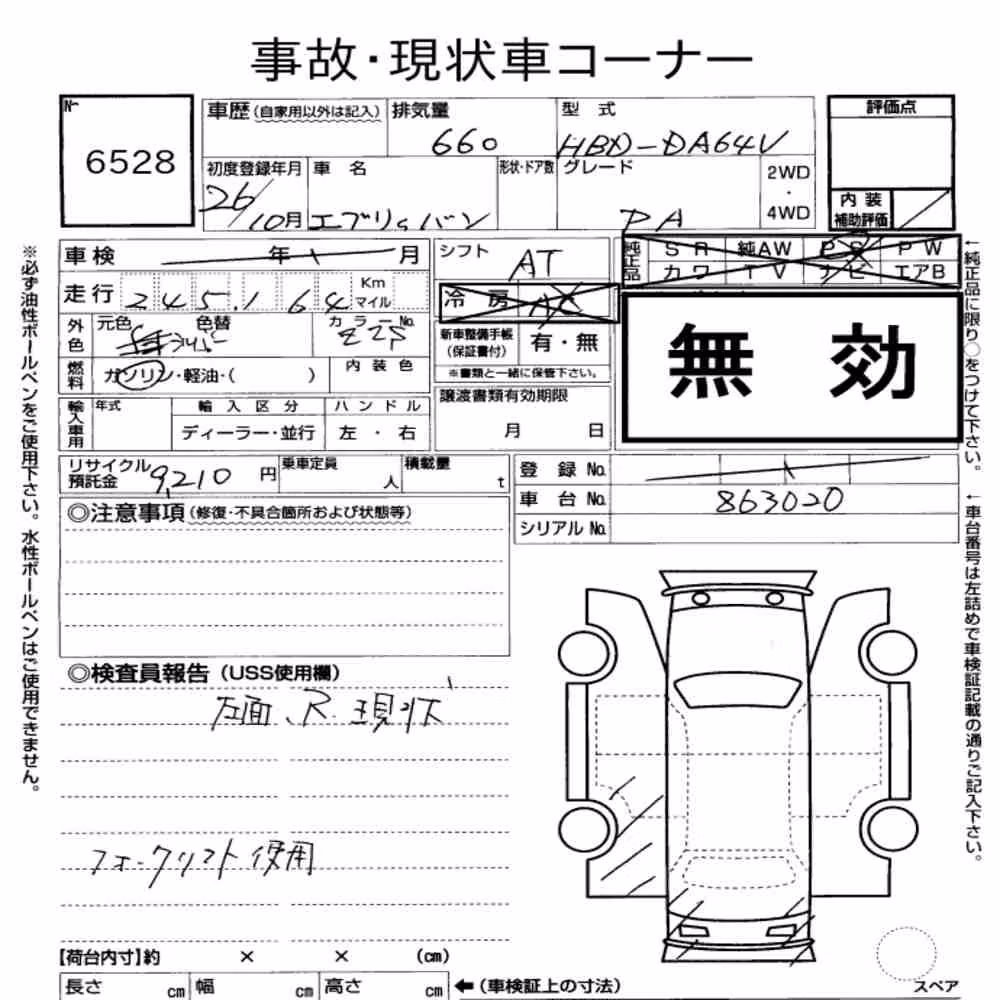 事故・現状車コーナー
№
6528
車歴(自家用以外は記入) 排気量 660 型式 HBD-DA64V
評価点
初度登録年月 26/10月 車名 エブリィバン 形状・ドア数 グレード PA 2WD・4WD
内装補助評価
※必ず油性ボールペンをご使用下さい。水性ボールペンはご使用できません。
車検 年 月 シフト AT
純正品 SR 純AW PS PW
カワ TV ナビ エアB
走行 245,164 Km マイル 冷房 AC
←純正品に限り○をつけて下さい。
外色 元色 シルバー 色替 カラーNo. Z2S
新車整備手帳(保証書付) 有・無
※書類と一緒に保管下さい。
無効
燃料 ガソリン・軽油・( ) 内装色
譲渡書類有効期限 月 日
輸入車用 年式 輸入区分 ハンドル
ディーラー・並行 左・右
リサイクル預託金 9,210円 乗車定員 人 積載量 t
登録No.
車台No. 863020
シリアルNo.
←車台番号は左詰めで車検証記載の通りご記入下さい。
◎注意事項(修復・不具合箇所および状態等)
◎検査員報告(USS使用欄)
左面、R 現状
フォークリフト使用
【荷台内寸】約 × × (cm)
長さ cm 幅 cm 高さ cm ←(車検証上の寸法)
スペア